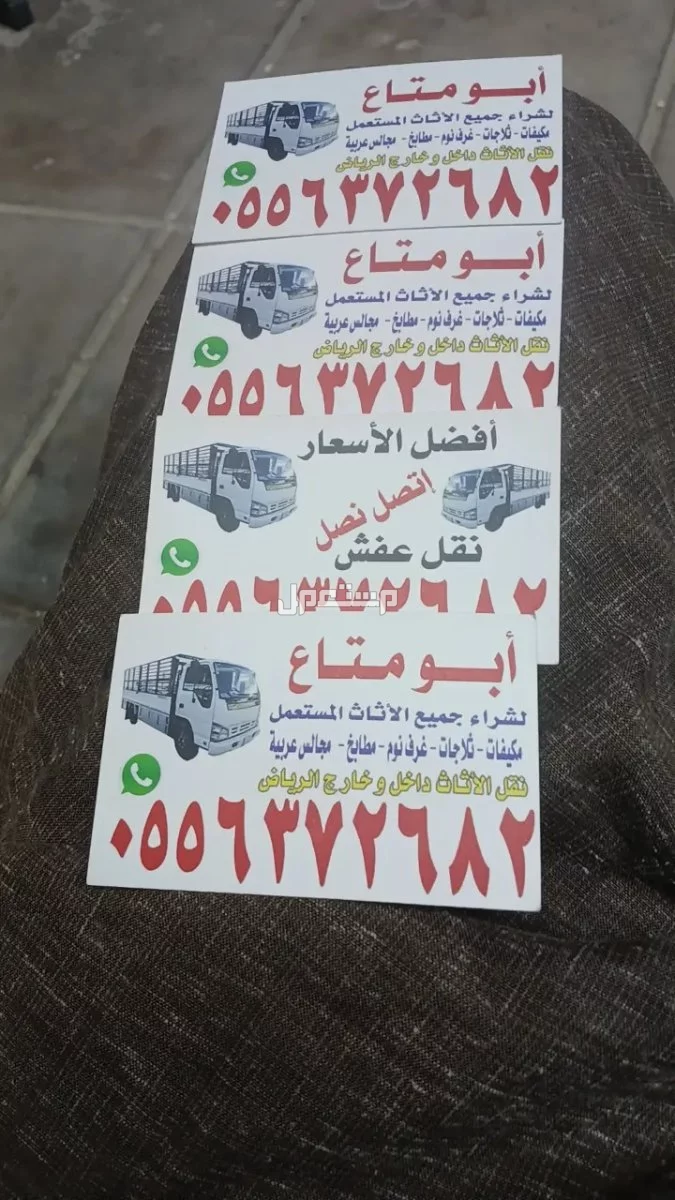 أبو متاع
لشراء جميع الأثاث المستعمل
مكيفات - ثلاجات - غرف نوم - مطابخ - مجالس عربية
نقل الأثاث داخل وخارج الرياض
٠٥٥٦٣٧٢٦٨٢
أبو متاع
لشراء جميع الأثاث المستعمل
مكيفات - ثلاجات - غرف نوم - مطابخ - مجالس عربية
نقل الأثاث داخل وخارج الرياض
٠٥٥٦٣٧٢٦٨٢
أفضل الأسعار
إتصل نصل
نقل عفش
٠٥٥٦٣٧٢٦٨٢
مستعمل
أبو متاع
لشراء جميع الأثاث المستعمل
مكيفات - ثلاجات - غرف نوم - مطابخ - مجالس عربية
نقل الأثاث داخل وخارج الرياض
٠٥٥٦٣٧٢٦٨٢